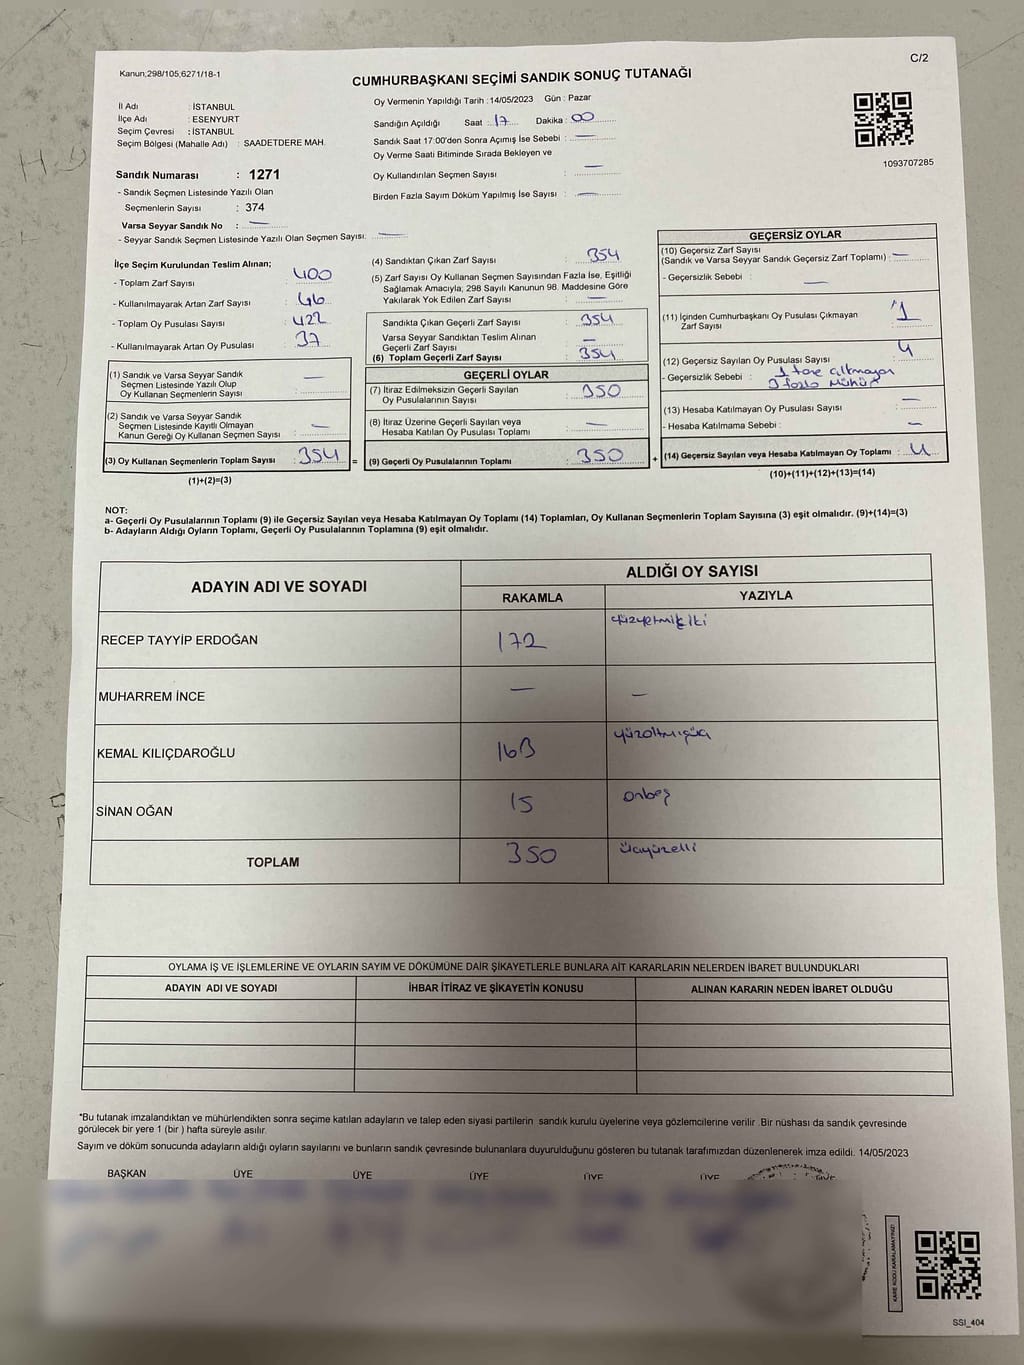 Kanun,298/105,6271/18-1
C/2
CUMHURBAŞKANI SEÇİMİ SANDIK SONUÇ TUTANAĞI
İl Adı : İSTANBUL
İlçe Adı : ESENYURT
Seçim Çevresi : İSTANBUL
Seçim Bölgesi (Mahalle Adı) : SAADETDERE MAH.
Oy Vermenin Yapıldığı Tarih : 14/05/2023 Gün : Pazar
Sandığın Açıldığı Saat : 17 Dakika : 00
Sandık Saat 17:00'den Sonra Açımış İse Sebebi : —
Oy Verme Saati Bitiminde Sırada Bekleyen ve
Oy Kullandırılan Seçmen Sayısı : —
Birden Fazla Sayım Döküm Yapılmış İse Sayısı : —
1093707285
Sandık Numarası : 1271
- Sandık Seçmen Listesinde Yazılı Olan
Seçmenlerin Sayısı : 374
Varsa Seyyar Sandık No : —
- Seyyar Sandık Seçmen Listesinde Yazılı Olan Seçmen Sayısı: —
İlçe Seçim Kurulundan Teslim Alınan;
- Toplam Zarf Sayısı : 400
- Kullanılmayarak Artan Zarf Sayısı : 46
- Toplam Oy Pusulası Sayısı : 422
- Kullanılmayarak Artan Oy Pusulası : 37
(1) Sandık ve Varsa Seyyar Sandık
Seçmen Listesinde Yazılı Olup
Oy Kullanan Seçmenlerin Sayısı : —
(2) Sandık ve Varsa Seyyar Sandık
Seçmen Listesinde Kayıtlı Olmayan
Kanun Gereği Oy Kullanan Seçmen Sayısı : —
(3) Oy Kullanan Seçmenlerin Toplam Sayısı : 354 =
(1)+(2)=(3)
(4) Sandıktan Çıkan Zarf Sayısı : 354
(5) Zarf Sayısı Oy Kullanan Seçmen Sayısından Fazla İse, Eşitliği
Sağlamak Amacıyla; 298 Sayılı Kanunun 98. Maddesine Göre
Yakılarak Yok Edilen Zarf Sayısı : —
Sandıkta Çıkan Geçerli Zarf Sayısı : 354
Varsa Seyyar Sandıktan Teslim Alınan
Geçerli Zarf Sayısı : —
(6) Toplam Geçerli Zarf Sayısı : 354
GEÇERLİ OYLAR
(7) İtiraz Edilmeksizin Geçerli Sayılan
Oy Pusulalarının Sayısı : 350
(8) İtiraz Üzerine Geçerli Sayılan veya
Hesaba Katılan Oy Pusulası Toplamı : —
(9) Geçerli Oy Pusulalarının Toplamı : 350 +
GEÇERSİZ OYLAR
(10) Geçersiz Zarf Sayısı
(Sandık ve Varsa Seyyar Sandık Geçersiz Zarf Toplamı) : —
- Geçersizlik Sebebi : —
(11) İçinden Cumhurbaşkanı Oy Pusulası Çıkmayan
Zarf Sayısı : 1
(12) Geçersiz Sayılan Oy Pusulası Sayısı : 4
- Geçersizlik Sebebi : 1 tane
3 fazla mühür
(13) Hesaba Katılmayan Oy Pusulası Sayısı : —
- Hesaba Katılmama Sebebi : —
(14) Geçersiz Sayılan veya Hesaba Katılmayan Oy Toplamı : 4
(10)+(11)+(12)+(13)=(14)
NOT:
a- Geçerli Oy Pusulalarının Toplamı (9) ile Geçersiz Sayılan veya Hesaba Katılmayan Oy Toplamı (14) Toplamları, Oy Kullanan Seçmenlerin Toplam Sayısına (3) eşit olmalıdır. (9)+(14)=(3)
b- Adayların Aldığı Oyların Toplamı, Geçerli Oy Pusulalarının Toplamına (9) eşit olmalıdır.
ADAYIN ADI VE SOYADI
ALDIĞI OY SAYISI
RAKAMLA YAZIYLA
RECEP TAYYİP ERDOĞAN 172 yüzyetmişiki
MUHARREM İNCE — —
KEMAL KILIÇDAROĞLU 163 yüzaltmışüç
SİNAN OĞAN 15 onbeş
TOPLAM 350 üçyüzelli
OYLAMA İŞ VE İŞLEMLERİNE VE OYLARIN SAYIM VE DÖKÜMÜNE DAİR ŞİKAYETLERLE BUNLARA AİT KARARLARIN NELERDEN İBARET BULUNDUKLARI
ADAYIN ADI VE SOYADI İHBAR İTİRAZ VE ŞİKAYETİN KONUSU ALINAN KARARIN NEDEN İBARET OLDUĞU
*Bu tutanak imzalandıktan ve mühürlendikten sonra seçime katılan adayların ve talep eden siyasi partilerin sandık kurulu üyelerine veya gözlemcilerine verilir .Bir nüshası da sandık çevresinde
görülecek bir yere 1 (bir ) hafta süreyle asılır.
Sayım ve döküm sonucunda adayların aldığı oyların sayılarını ve bunların sandık çevresinde bulunanlara duyurulduğunu gösteren bu tutanak tarafımızdan düzenlenerek imza edildi. 14/05/2023
BAŞKAN ÜYE ÜYE ÜYE ÜYE ÜYE
KARE KODU KARALAMAYINIZ!
SSI_404